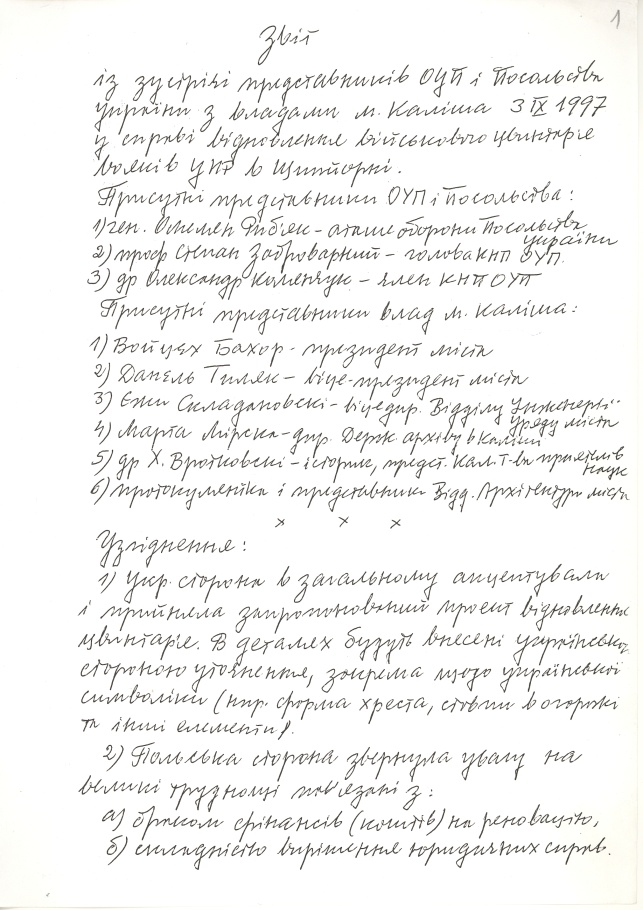 1
Звіт
із зустрічі представників ОУП і Посольства
України з владами м. Каліша 3 IX 1997
у справі відновлення військового цвинтаріє
вояків УНР в Щипіорні.
Присутні представники ОУП і Посольства:
1) ген. – аташе оборони Посольства
України
2) проф Степан Заброварний – голова КНП ОУП.
3) др Олександр Колянчук – член КНП ОУП
Присутні представники влад м. Каліша:
1) Войцех Бахор - президент міста
2) Данель Тиляк – віце-президент міста
3) Єжи Складановскі – віцедир. Відділу Інженерії
уряду міста
4) Марта Мірска – дир. Держ. архіву в Каліші
5) др Х. Вротковскі – історик, предст. Кал. Т-ва приятелів
наук
6) і представники Відд. Архітектури міста
х х х
Узгіднення:
1) Укр. сторона в загальному акцептувала
і прийняла запропонований проект відновлення
цвинтаріє. В деталях будуть внесені українською
стороною уточнення, зокрема щодо української
символіки (нпр. форма хреста, в огорожі
та інші елементи).
2) Польська сторона звернула увагу на
великі труднощі пов'язані з:
а) браком фінансів (коштів) на реновацію,
б) складністю вирішення юридичних справ.